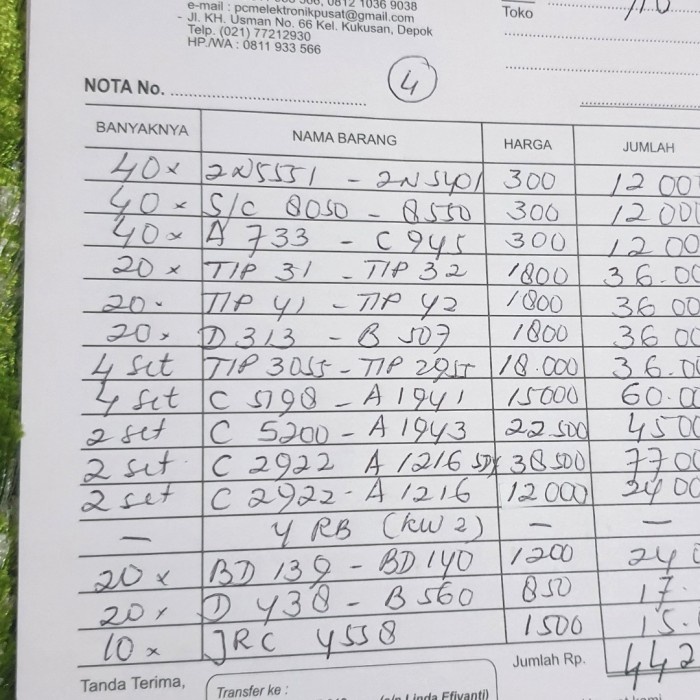 e-mail : pcmelektronikpusat@gmail.com
- Jl. KH. Usman No. 66 Kel. Kukusan, Depok
Telp. (021) 77212930
HP./WA : 0811 933 566
Toko
4
NOTA No.
BANYAKNYA NAMA BARANG HARGA JUMLAH
40x 2N5551 - 2N5401 300 1200
40x S/C 8050 - 8550 300 1200
40x A 733 - C 945 300 1200
20x TIP 31 - TIP 32 1800 36.00
20. TIP 41 - TIP 42 1800 36 00
20x D 313 - B 507 1800 36 00
4 set TIP 3055 - TIP 2955 18.000 36.00
4 set C 5198 - A 1941 15000 60.00
2 set C 5200 - A 1943 22.500 4500
2 set C 2922 A 1216 38500 7700
2 set C 2922 - A 1216 12000 2400
- 4 RB (KW 2) - -
20x BD 139 - BD 140 1200 240
20x D 438 - B 560 850 17.
10x JRC 4558 1500 15.
Jumlah Rp. 442
Tanda Terima,
Transfer ke :
Linda Efiyanti)